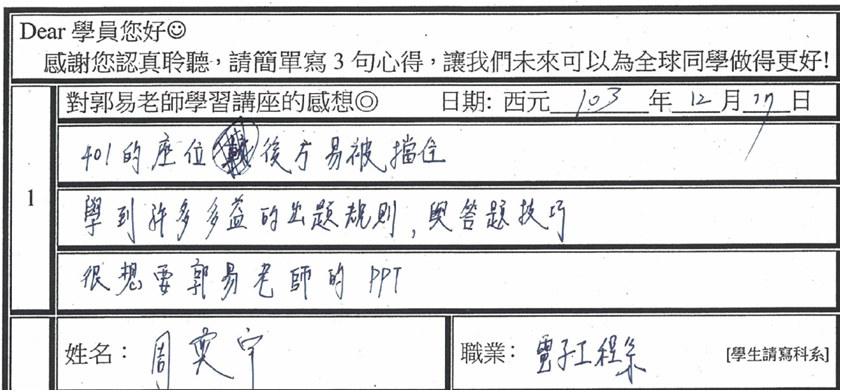 Dear 學員您好☺
感謝您認真聆聽，請簡單寫3句心得，讓我們未來可以為全球同學做得更好!
1
對郭易老師學習講座的感想◎ 日期: 西元 103 年 12 月 17 日
401的座位 後方易被擋住
學到許多多益的出題規則,與答題技巧
很想要郭易老師的 PPT
姓名：周奕宇 職業：電子工程系 [學生請寫科系]